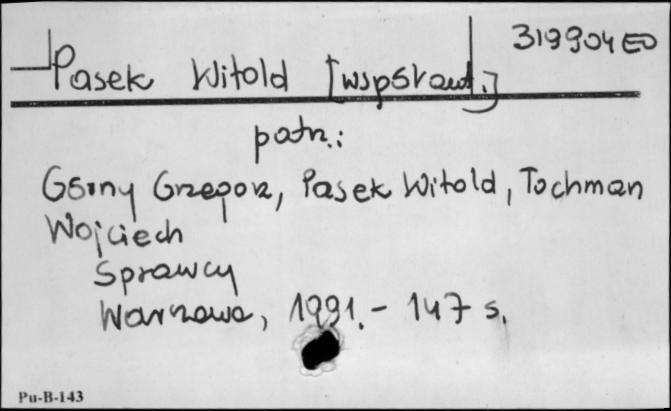 319904 ED
Pasek Witold [współaut.]
patrz:
Górny Grzegorz, Pasek Witold, Tochman
Wojciech
Sprawcy
Warszawa, 1991. - 147 s.
Pu-B-143